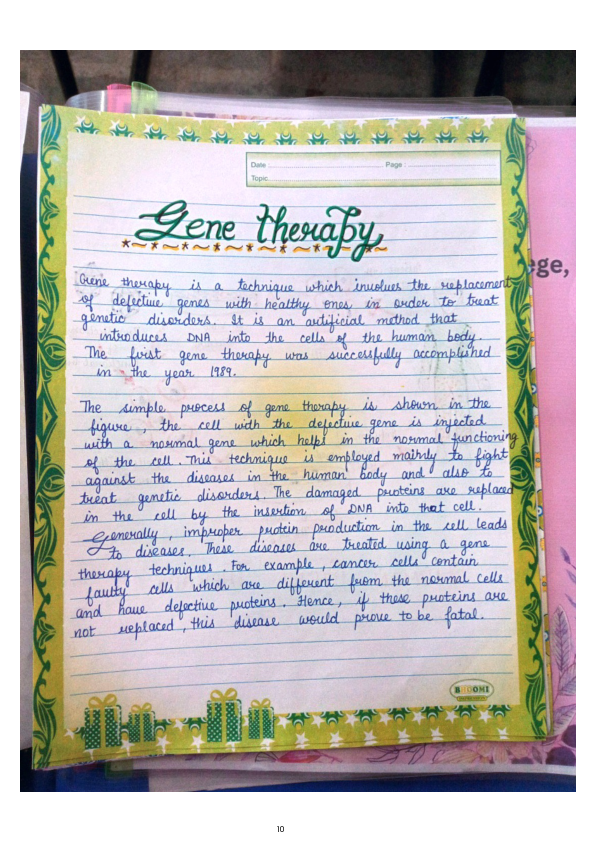 Date
Page :
Topic
Gene therapy
ege,
Gene therapy is a technique which involves the replacement
of defective genes with healthy ones in order to treat
genetic disorders. It is an artificial method that
introduces DNA into the cells of the human body.
The first gene therapy was successfully accomplished
in the year 1989.
The simple process of gene therapy is shown in the
figure, the cell with the defective gene is injected
with a normal gene which helps in the normal functioning
of the cell. This technique is employed mainly to fight
against the diseases in the human body and also to
treat genetic disorders. The damaged proteins are replaced
in the cell by the insertion of DNA into that cell.
Generally, improper protin production in the cell leads
to diseases. These diseases are treated using a gene
therapy techniques. For example, cancer cells contain
faulty cells which are different from the normal cells
and have defective proteins. Hence, if these proteins are
not replaced, this disease would prove to be fatal.
BHOOMI
10